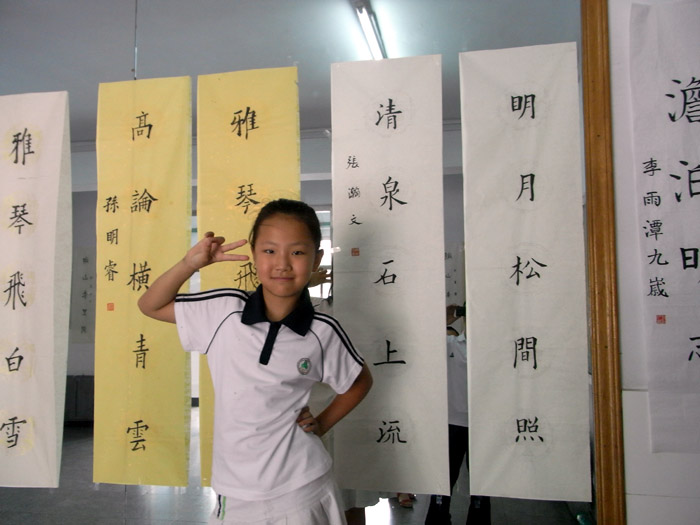 澹泊明志
李雨潭九嵗
明月松間照
清泉石上流
張瀚文
雅琴飛
髙論橫青雲
孫明睿
雅琴飛白雪